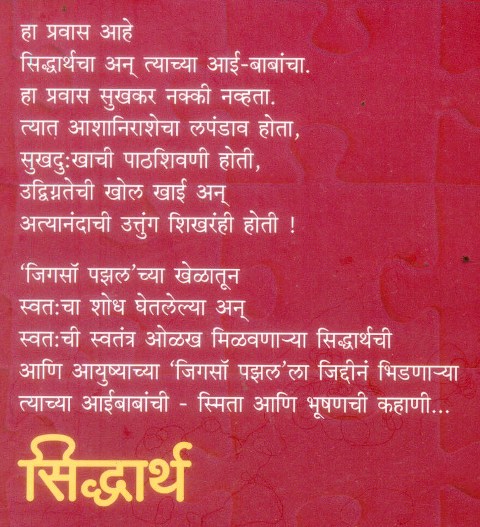 हा प्रवास आहे
सिद्धार्थचा अन् त्याच्या आई-बाबांचा.
हा प्रवास सुखकर नक्की नव्हता.
त्यात आशानिराशेचा लपंडाव होता,
सुखदुःखाची पाठशिवणी होती,
उद्विग्नतेची खोल खाई अन्
अत्यानंदाची उत्तुंग शिखरंही होती !
‘जिगसॉ पझल’च्या खेळातून
स्वतःचा शोध घेतलेल्या अन्
स्वतःची स्वतंत्र ओळख मिळवणाऱ्या सिद्धार्थची
आणि आयुष्याच्या ‘जिगसॉ पझल’ला जिद्दीनं भिडणाऱ्या
त्याच्या आईबाबांची - स्मिता आणि भूषणची कहाणी...
सिद्धार्थ